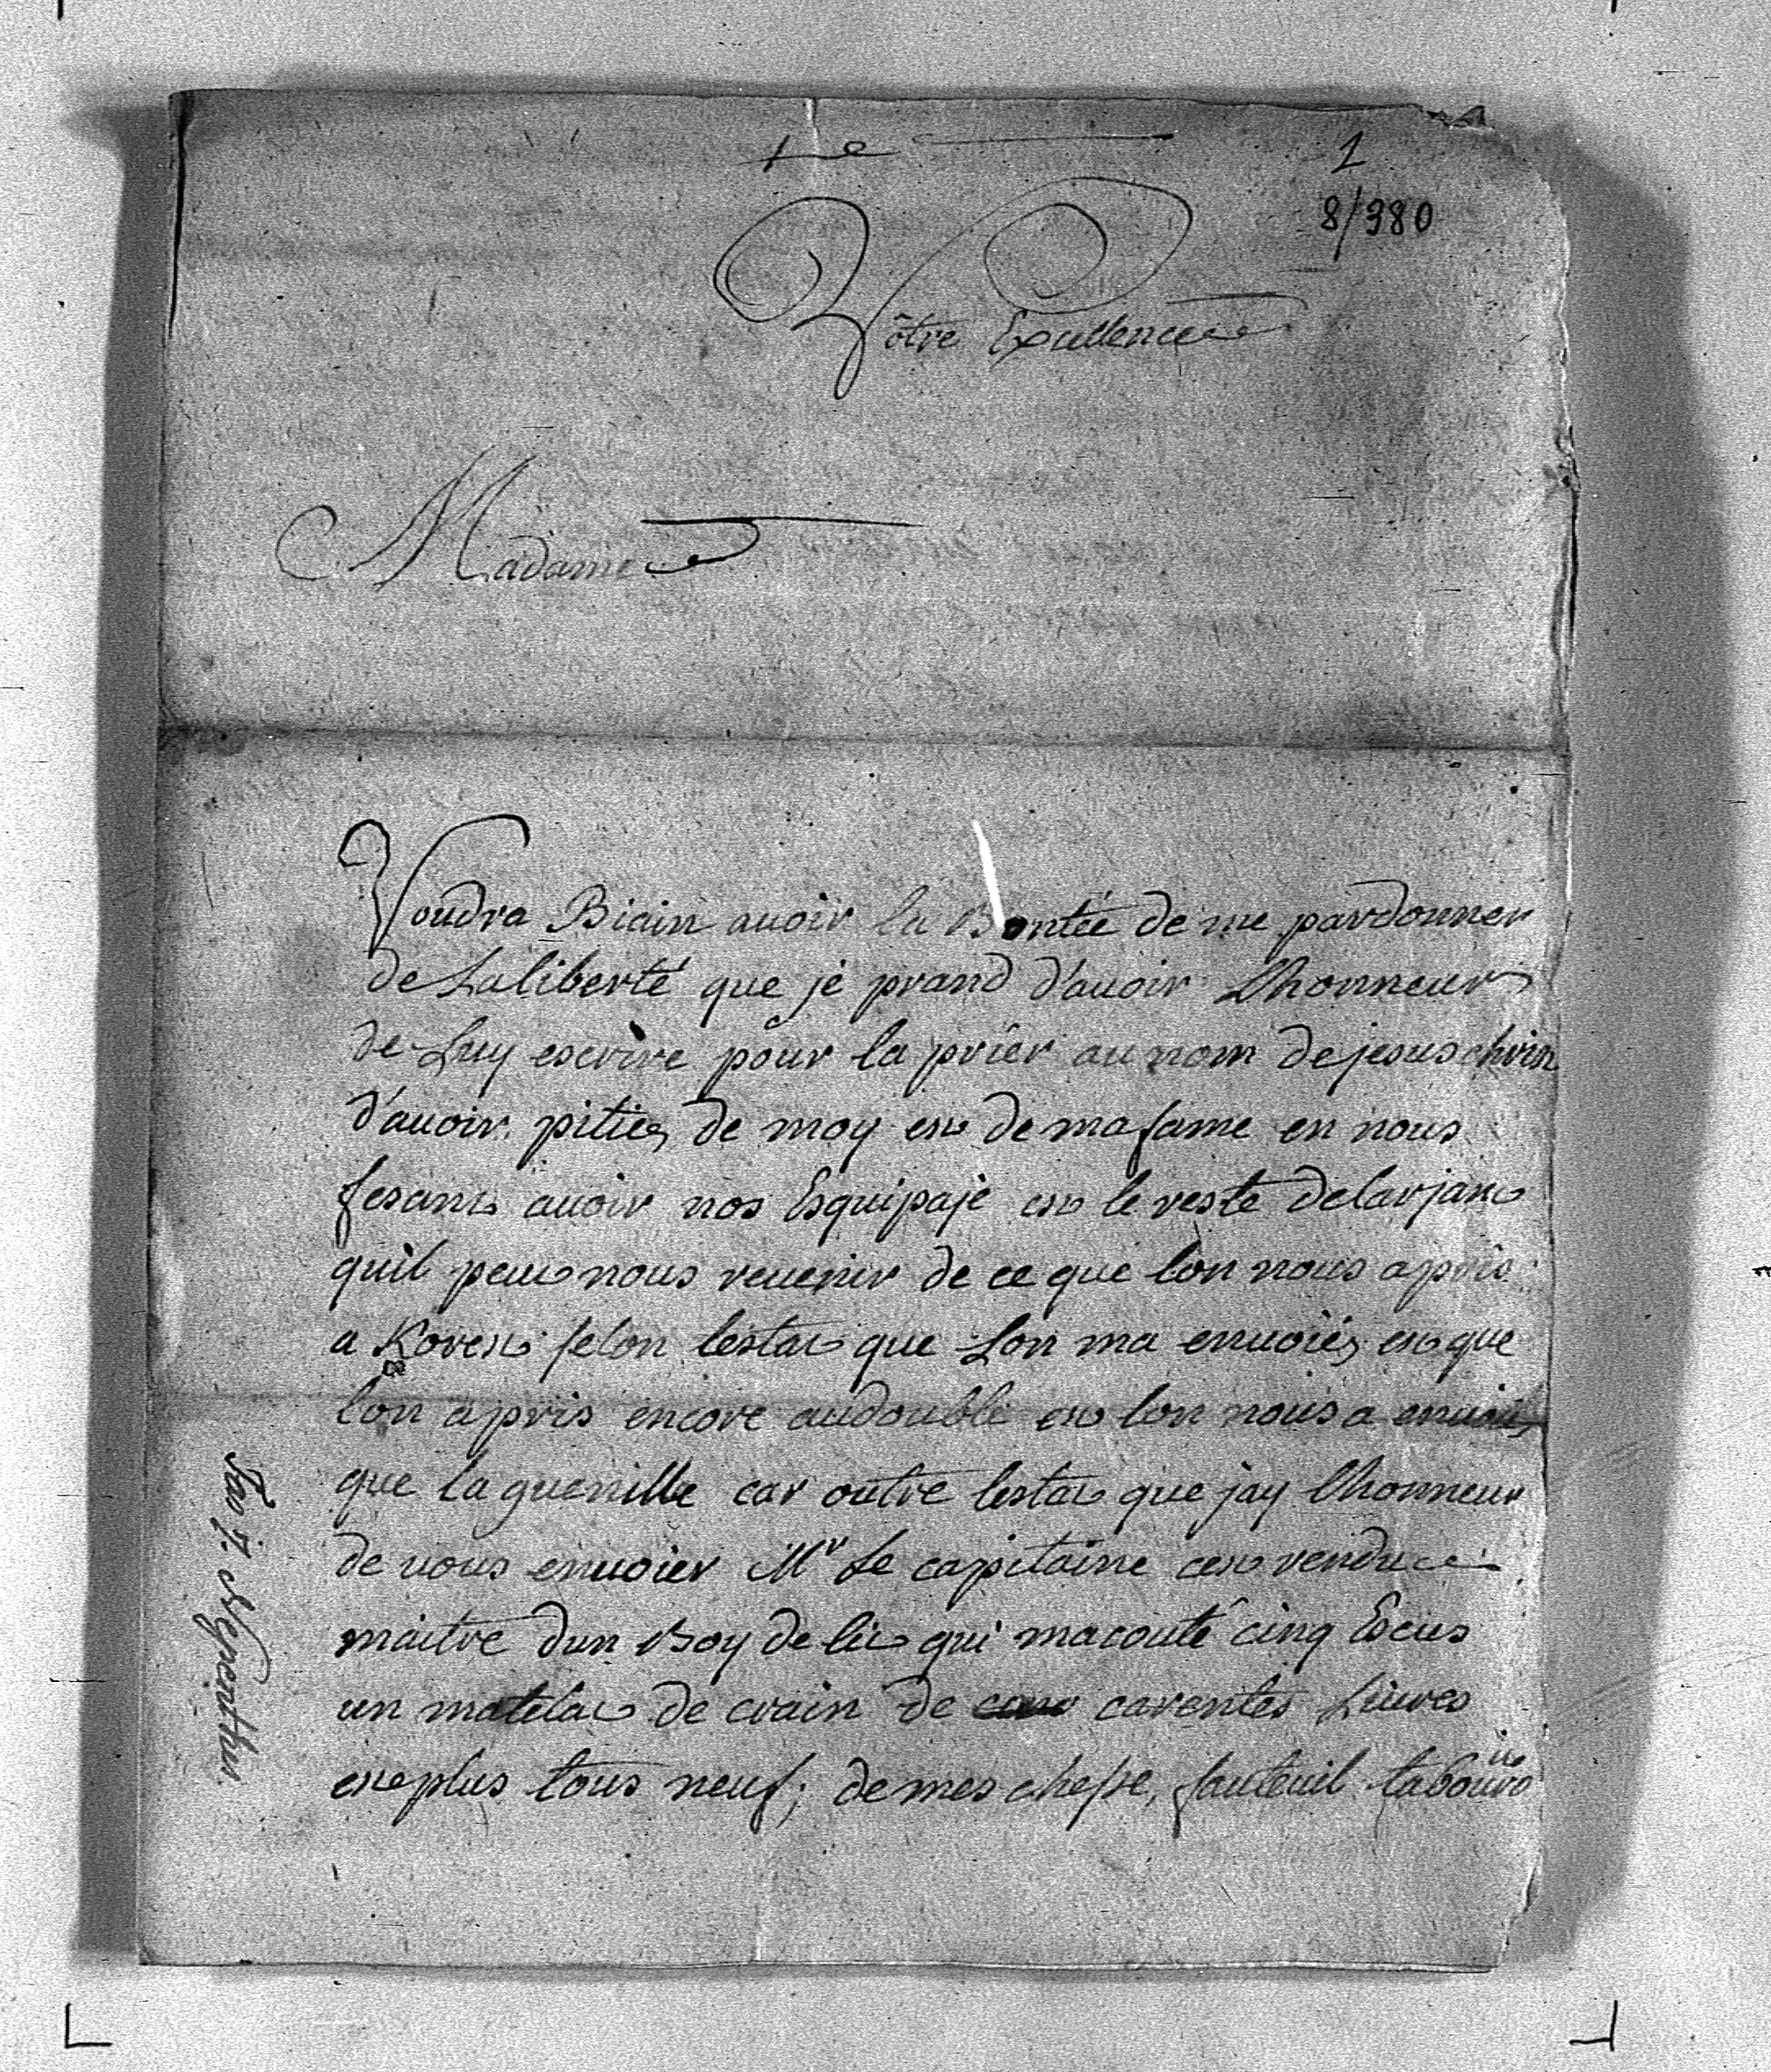 1
8/380
Vôtre Excellence
Madame
Voudra Biain auoir la Bontée de me pardonner
de Laliberté que jé prand d'auoir Lhonneur
de Luy escrire pour la priér au nom de jesus chris
d'auoir pitiéz de moy est de mafame en nous
fesant auoir nos Esquipajé est le reste delarjant
quil peut nous reuenir de ce que lon nous apris
a Korest selon lestat que Lon ma enuoiéz est que
lon apris encore audouble est lon nous a enuoiéz
que la guenille car outre lestat que jay lhonneur
de uous enuoier Mr Le capitaine cest rendu
maitre dun Boy de lit qui macouté cinq Escus
un matelat de crain de carentes Liures
est plus tous neuf; de mes chesse, fauteuil